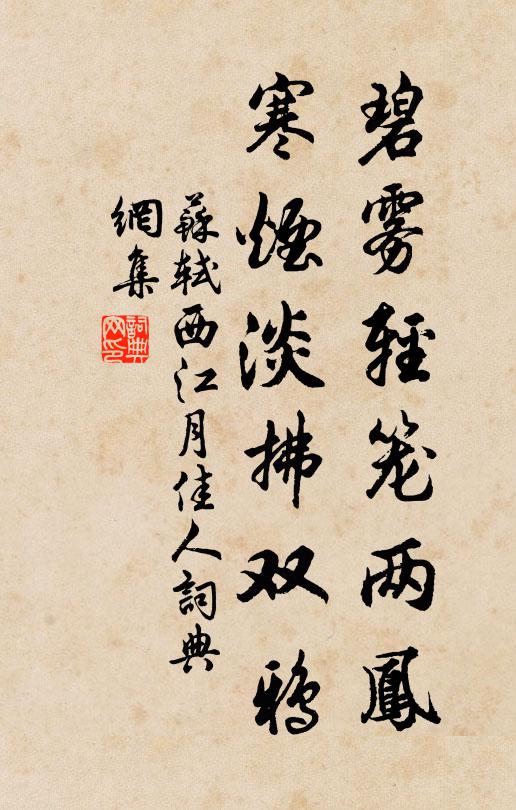 碧雾輕笼两鳳
寒煙淡拂双鴉
蘇軾西江月佳人詞典
網集
詞典
网印